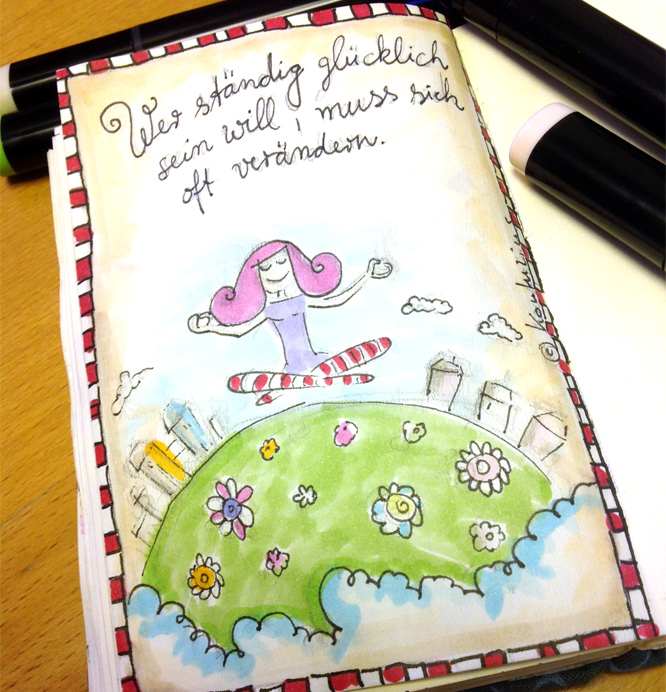 Wer ständig glücklich
sein will, muss sich
oft verändern.
© Konfuzius